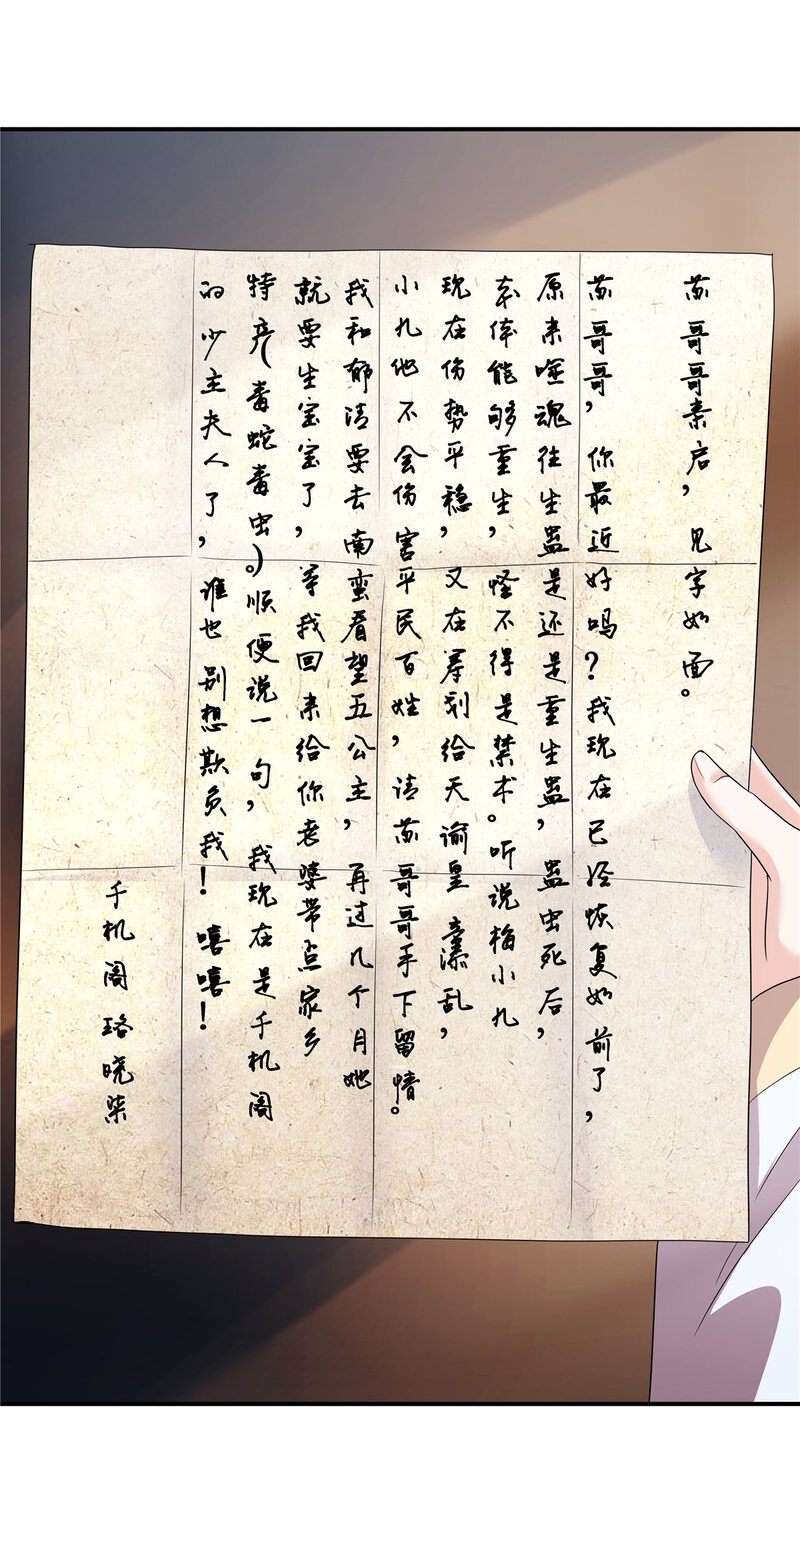 苏哥哥亲启，见字如面。
苏哥哥，你最近好吗？我现在已经恢复如前了，
原来噬魂往生蛊是还是重生蛊，蛊虫死后，
本体能够重生，怪不得是禁术。听说梅小九
现在伤势平稳，又在筹划给天谕皇室添乱，
小九他不会伤害平民百姓，请苏哥哥手下留情。
我和郁清要去南蛮看望五公主，再过几个月她
就要生宝宝了，等我回来给你老婆带点家乡
特产（毒蛇毒虫。）顺便说一句，我现在是千机阁
的少主夫人了，谁也别想欺负我！嘻嘻！
千机阁 珞晓柒